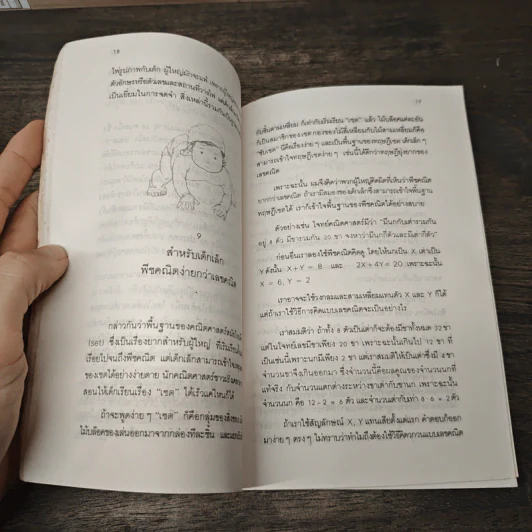 18
ไพ่รูปภาพกับเด็ก ผู้ใหญ่มักจะแพ้
ตัวอักษรหรือตัวเลขและสถานที่
เป็นเยี่ยมในการจดจำ สิ่งเหล่านี้
9
สำหรับเด็กเล็ก
พีชคณิตง่ายกว่าเลขคณิต
กล่าวกันว่าพื้นฐานของคณิตศาสตร์
(set) ซึ่งเป็นเรื่องยากสำหรับผู้ใหญ่ ที่เริ่มเรียน
เรื่อยไปจนถึงพีชคณิต แต่เด็กเล็กสามารถเข้าใจ
ของเซตได้อย่างง่ายดาย นักคณิตศาสตร์ชาว
สอนให้เด็กเรียนเรื่อง "เซต" ได้เร็วแค่ไหนก็ได้
ถ้าจะพูดง่าย ๆ "เซต" ก็คือกลุ่มของสิ่งของ
ไม้บล็อคของเล่นออกมาจากกล่องทีละชิ้น และแยก
19
กับชิ้นสามเหลี่ยม ก็เท่ากับเริ่มเรียน "เซต" แล้ว ไม้บล็อคแต่ละอัน
ก็เป็นสมาชิกของเซต กองของไม้สี่เหลี่ยมกับไม้สามเหลี่ยมก็คือ
"ซับเซต" นี่คือเรื่องง่าย ๆ และเป็นพื้นฐานของทฤษฎีเซต เด็กเล็ก ๆ
สามารถเข้าใจทฤษฎีเซตง่าย ๆ เช่นนี้ได้ดีกว่าทฤษฎียุ่งยากของ
เลขคณิต
เพราะฉะนั้น ผมจึงคิดว่าพวกผู้ใหญ่คิดผิดที่เห็นว่าพีชคณิต
ยากกว่าเลขคณิต ถ้าเรามีสมองของเด็กเล็กซึ่งสามารถเข้าใจพื้นฐาน
ทฤษฎีเซตได้ เราก็เข้าใจพื้นฐานของพีชคณิตได้อย่างสบาย
ตัวอย่างเช่น โจทย์คณิตศาสตร์มีว่า "มีนกกับเต่ารวมกัน
อยู่ 8 ตัว มีขารวมกัน 20 ขา จงหาว่ามีนกกี่ตัวและมีเต่ากี่ตัว"
ก่อนอื่นเราลองใช้พีชคณิตคิดดู โดยให้นกเป็น X เต่าเป็น
Y ดังนั้น X+Y = 8 และ 2X+4Y = 20 เพราะฉะนั้น
X = 6, Y = 2
เราอาจจะใช้วงกลมและสามเหลี่ยมแทนตัว X และ Y ก็ได้
แต่ถ้าเราใช้วิธีการคิดแบบเลขคณิตจะเป็นอย่างไร
เราสมมติว่า ถ้าทั้ง 8 ตัวเป็นเต่าก็จะต้องมีขาทั้งหมด 32 ขา
แต่ในโจทย์เลขมีขาเพียง 20 ขา เพราะฉะนั้นเกินไป 12 ขา ที่
เป็นเช่นนี้เพราะนกมีเพียง 2 ขา แต่เราสมมติให้เป็นเต่าซึ่งมี 4 ขา
จำนวนขาจึงเกินออกมา ซึ่งจำนวนนี้คือผลคูณของจำนวนนกที่
แท้จริง กับจำนวนแตกต่างระหว่างขาเต่ากับขานก เพราะฉะนั้น
จำนวนนก คือ 12÷2 = 6 ตัว และจำนวนเต่าก็เท่า 8-6 = 2 ตัว
ถ้าเราใช้สัญลักษณ์ X, Y แทนเสียตั้งแต่แรก คำตอบก็ออก
มาง่าย ๆ ตรง ๆ ไม่ทราบว่าทำไมถึงต้องใช้วิธีคิดวกวนแบบเลขคณิต